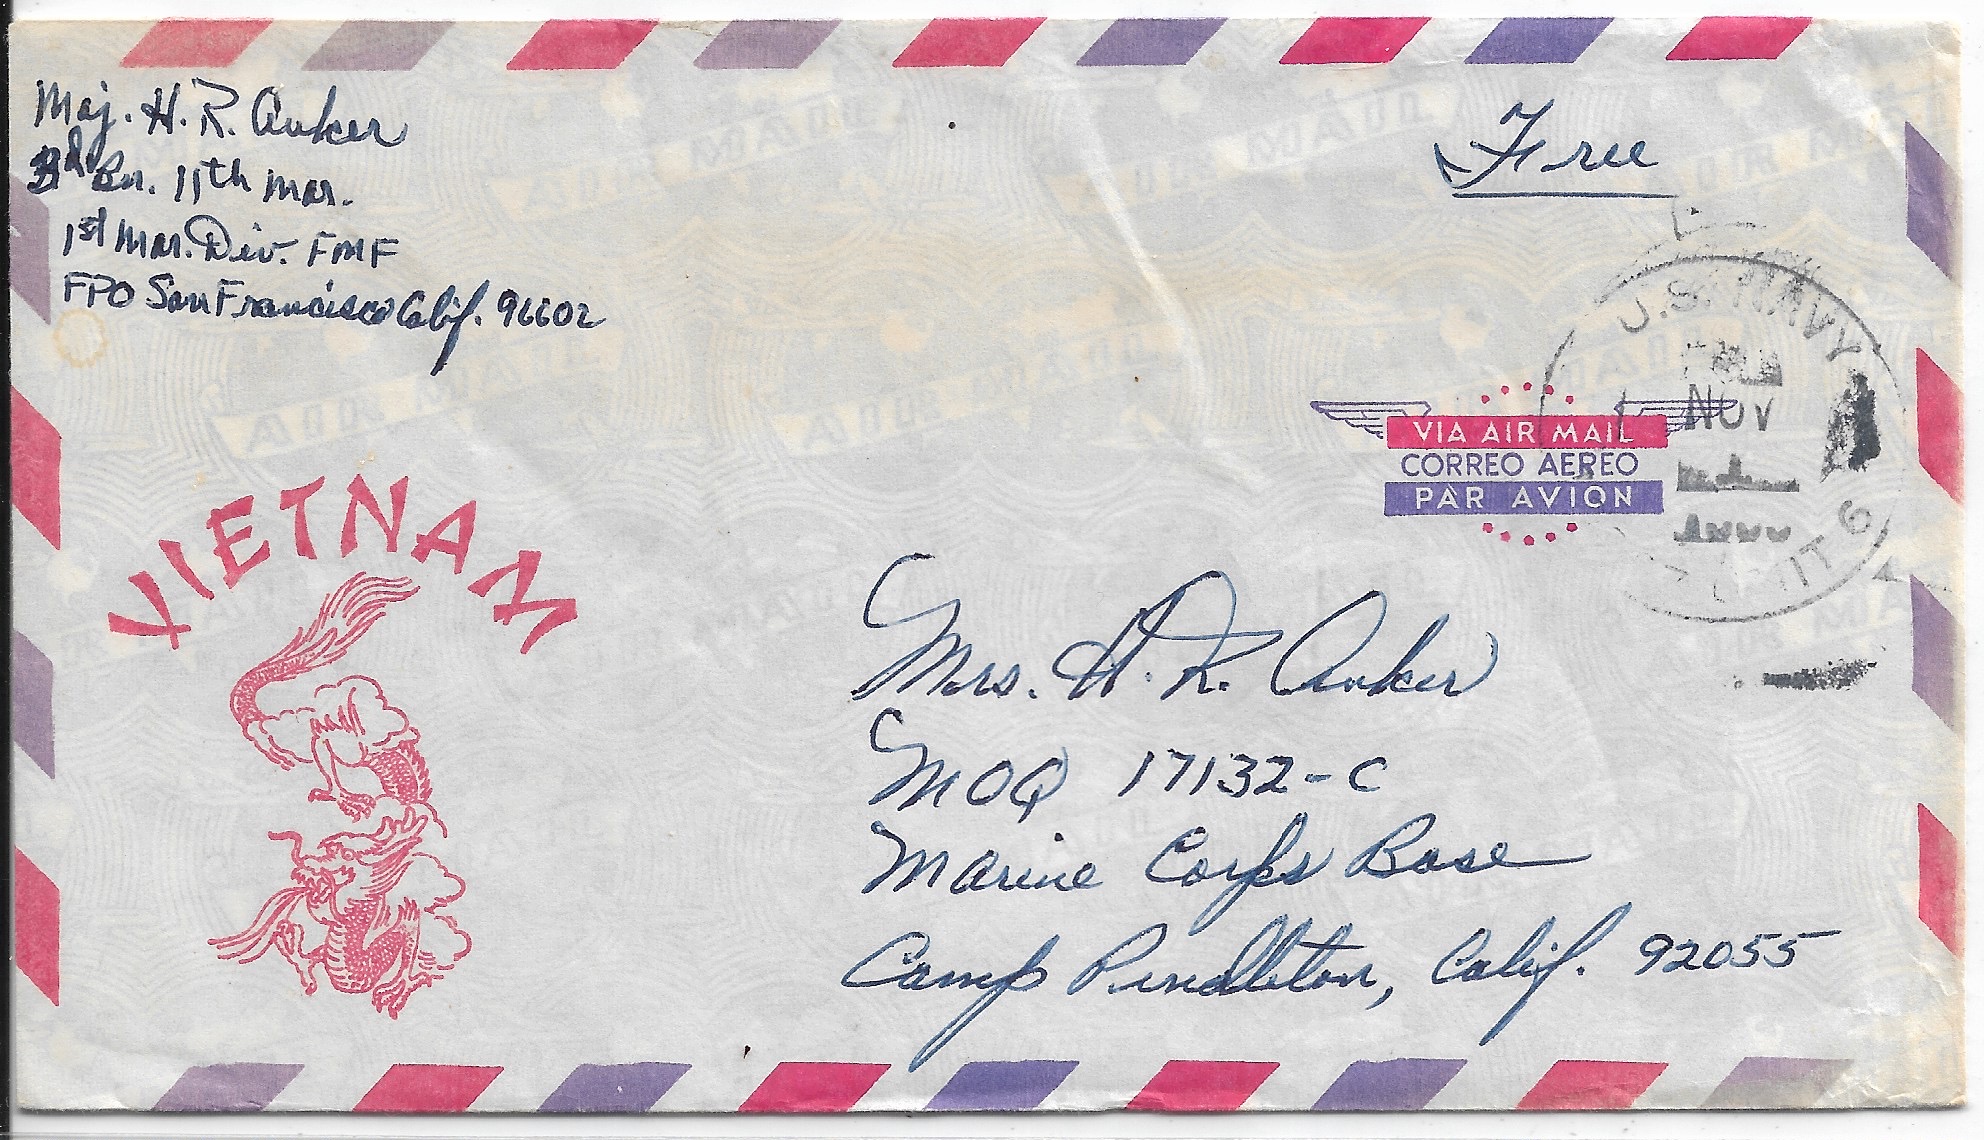 Maj. H. R. Anker
3rd Bn. 11th Mar.
1st Mar. Div. FMF
FPO San Francisco Calif. 96602
Free
U.S. NAVY
NOV
UNIT 6
VIA AIR MAIL
CORREO AEREO
PAR AVION
VIETNAM
Mrs. H. R. Anker
MOQ 17132-C
Marine Corps Base
Camp Pendleton, Calif. 92055